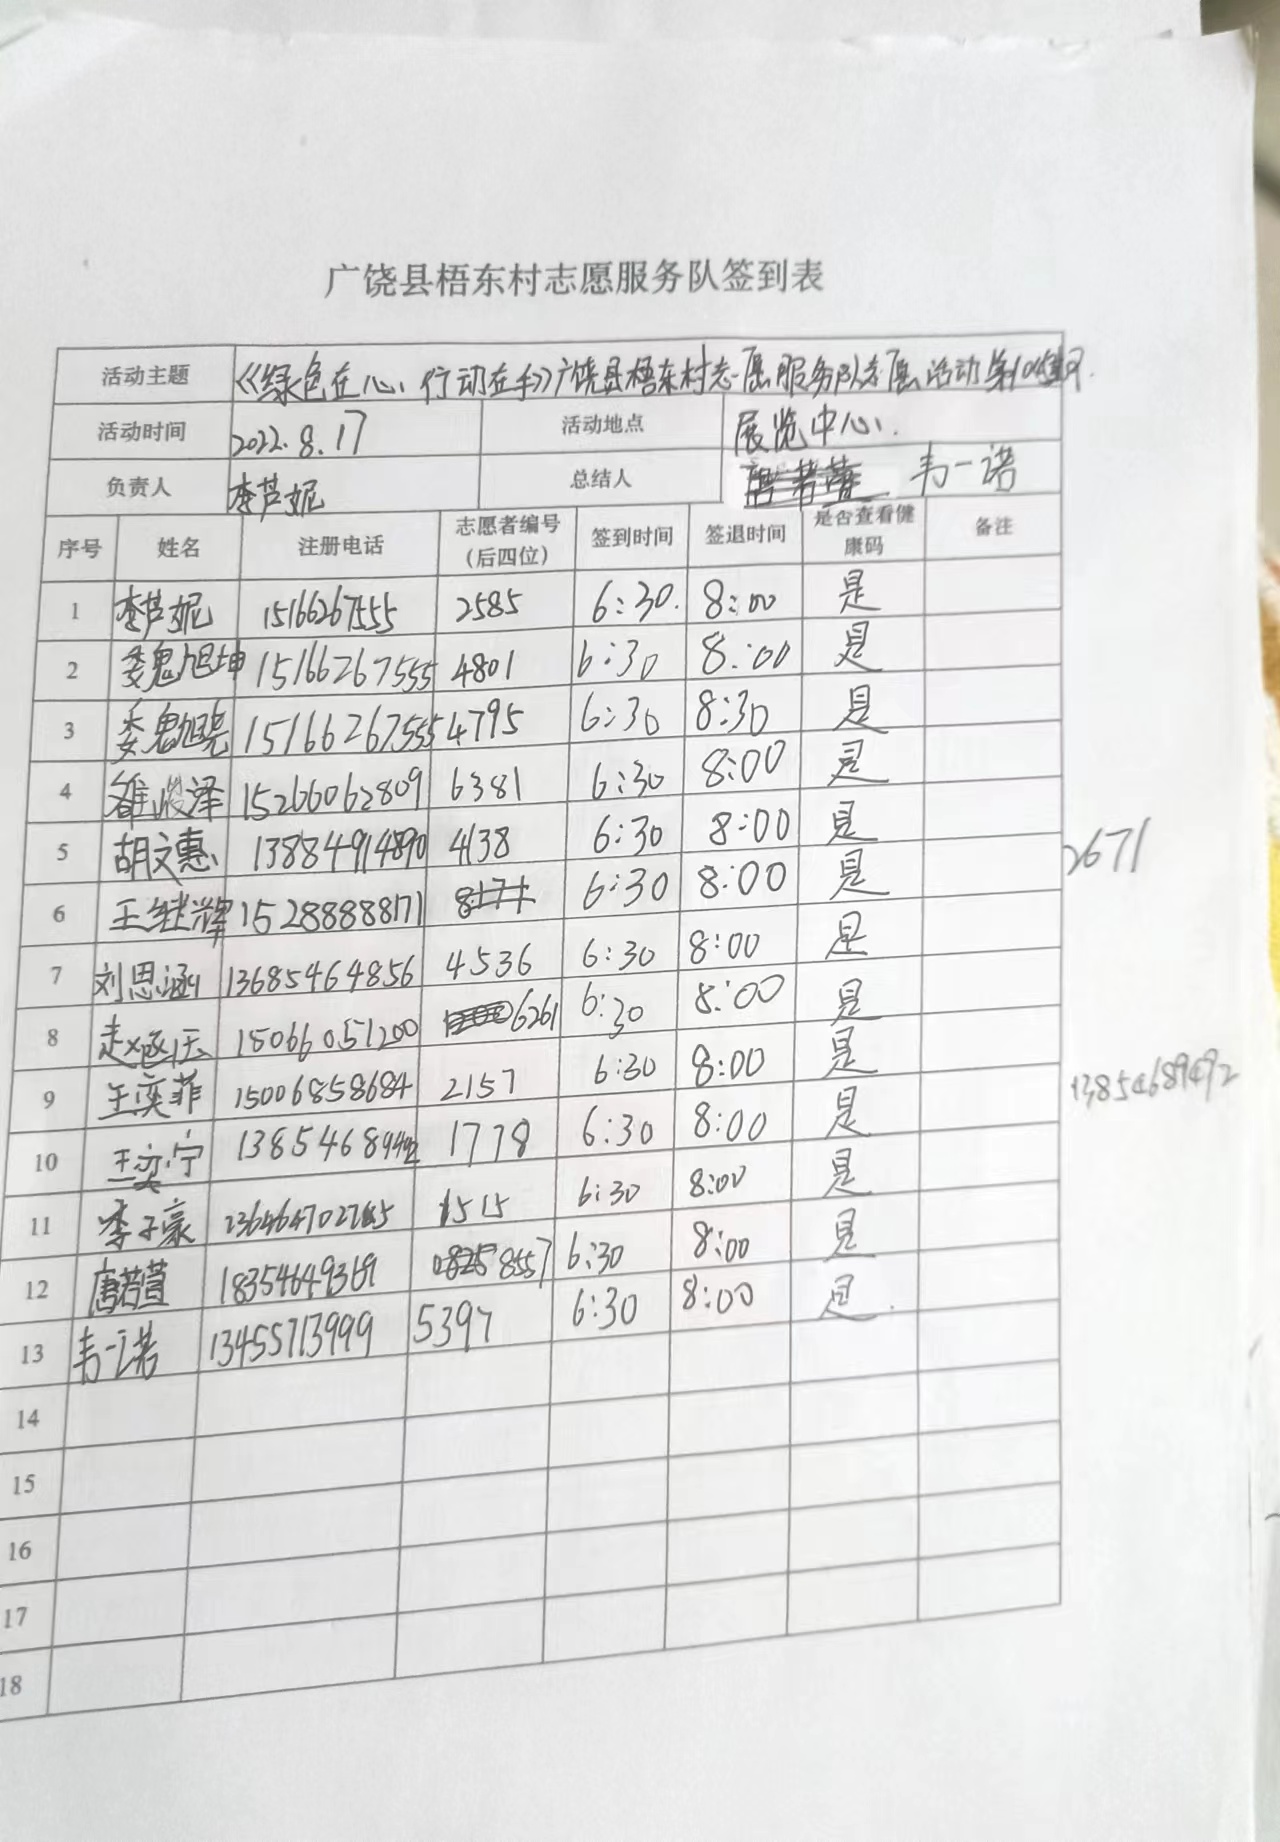 广饶县梧东村志愿服务队签到表
活动主题 《绿色在心、行动在手》广饶县梧东村志愿服务队志愿活动第
活动时间 2022.8.17 活动地点 展览中心.
负责人 李芦妮 总结人 韦一诺
序号 姓名 注册电话 志愿者编号（后四位） 签到时间 签退时间 是否查看健康码 备注
1 李芦妮 15166267555 2585 6:30. 8:00 是
2 委鬼旭坤 15166267555 4801 6:30 8:00 是
3 委鬼旭尧 15166267555 4795 6:30 8:30 是
4 雒峻泽 15266062809 6381 6:30 8:00 是
5 胡文惠 13884914890 4138 6:30 8:00 是
6 王继辉 15288888171 8171 6:30 8:00 是 2671
7 刘思涵 13685464856 4536 6:30 8:00 是
8 赵 15066051200 6261 6:30 8:00 是
9 王奕菲 15006858684 2157 6:30 8:00 是
10 王奕宁 13854689492 1778 6:30 8:00 是 13854689492
11 李子豪 1515 6:30 8:00 是
12 唐若萱 18354649369 8557 6:30 8:00 是
13 韦一诺 13455713999 5397 6:30 8:00 是.
14
15
16
17
18